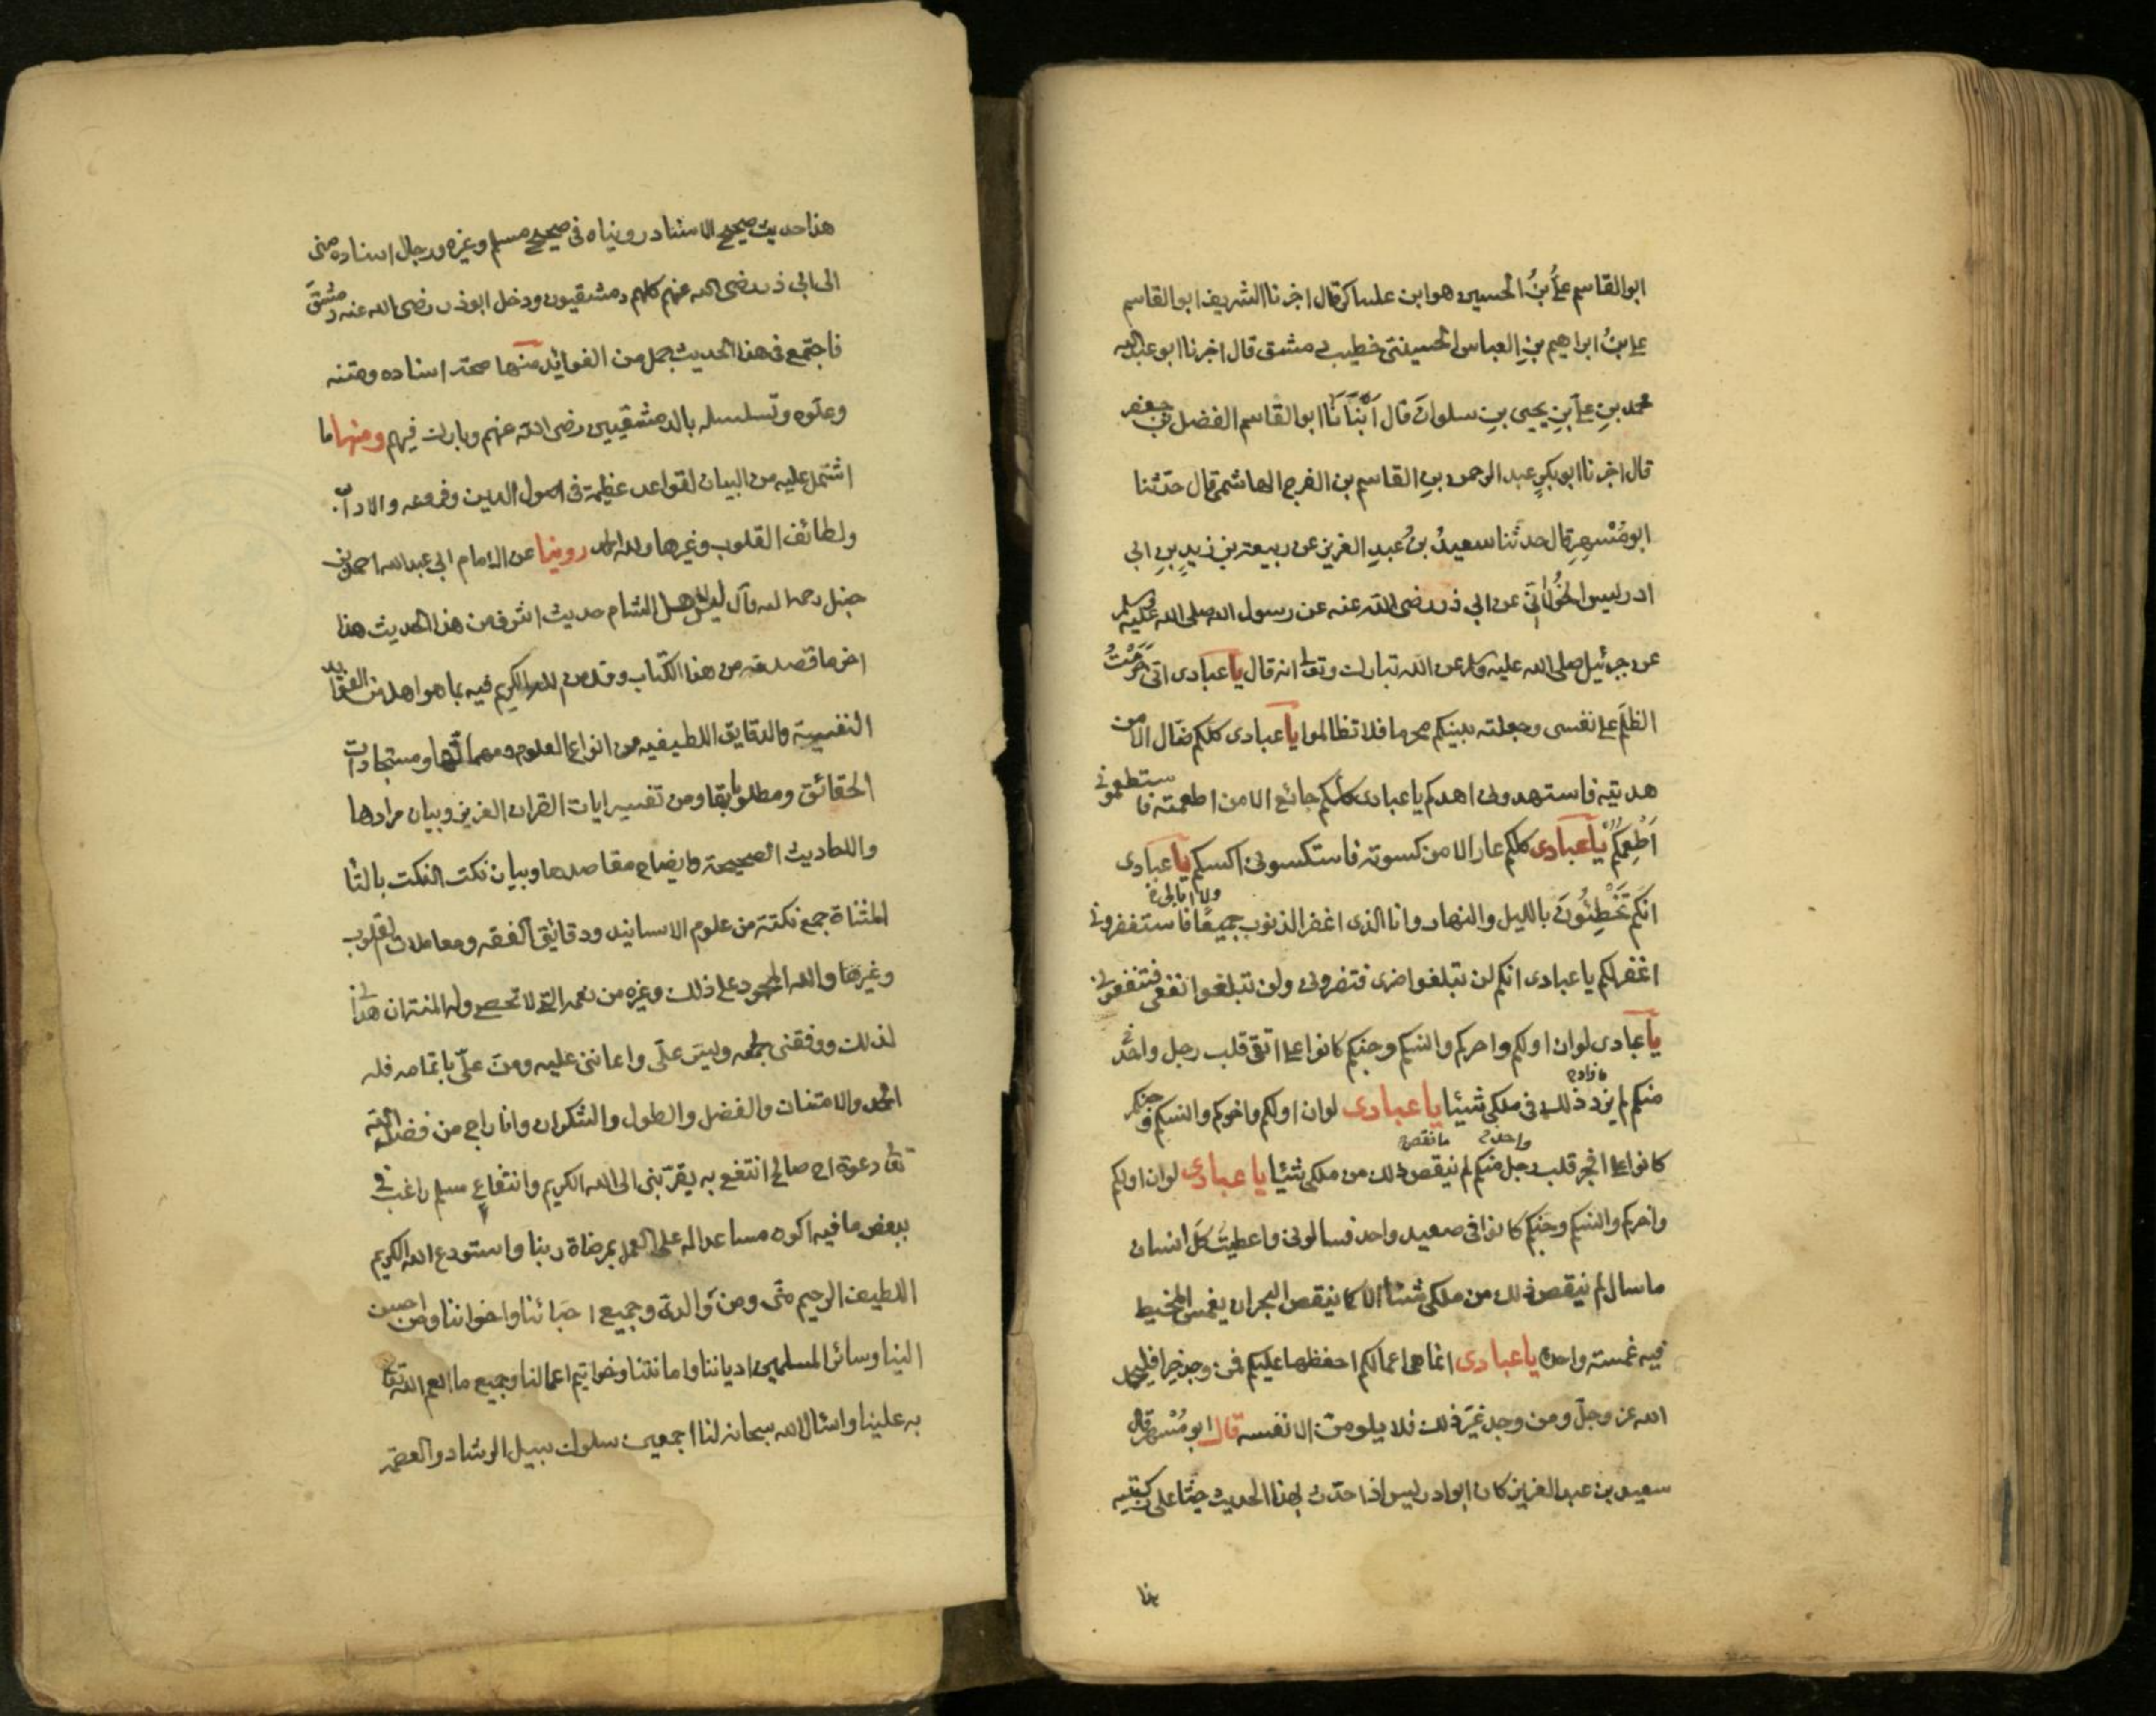 ابو القاسم علىُّ بنُ الحسين هو ابن عساكر قال اخبرنا الشريف ابو القاسم
على بنُ ابراهيم بنِ العباس الحسينى خطيب دمشق قال اخبرنا ابو عبد الله
محمد بنِ على بنِ يحيى بنِ سلوانَ قال اَنْبَاَنَا ابو القاسم الفضل بن جعفر
قال اخبرنا ابو بكرٍ عبد الرحمن بنِ القاسم بن الفرج الهاشمى قال حدثنا
ابو مُسْهِرٍ قال حدثنا سعيدُ بنُ عبدِ العزيز عن ربيعة بن يزيدٍ بنِ ابى
ادريس الخَوْلانى عن ابى ذر رضى الله عنه عن رسول الله صلى الله عليه وسلم
عن جبرئيل صلى الله عليه وسلم عن الله تبارك وتعالى انه قال يا عبادى انى حَرَّمْتُ
الظلم على نفسى وجعلته بينكم محرما فلا تظالموا يا عبادى كلكم ضال الا من
هديته فاستهدونى اهدكم يا عبادى كلكم جائع الا من اطعمته فاستطعمونى
اُطْعِمْكُمْ يا عبادى كلكم عار الا من كسوته فاستكسونى اكسكم يا عبادى
انكم تُخْطِئُونَ بالليل والنهار وانا الذى اغفر الذنوب جميعًا ولا ابالى فاستغفرونى
اغفر لكم يا عبادى انكم لن تبلغوا ضرى فتضرونى ولن تبلغوا نفعى فتنفعونى
يا عبادى لو ان اولكم واخركم وانسكم وجنكم كانوا على اتقى قلب رجل واحد
منكم لم يزد ذلك فى ملكى شيئا يا عبادى لو ان اولكم واخركم وانسكم وجنكم
ما زاد
كانوا على افجر قلب رجل منكم لم ينقص ذلك من ملكى شيئا يا عبادى لو ان اولكم
واحد ما نقص
واخركم وانسكم وجنكم كانوا فى صعيد واحد فسالونى واعطيت كل انسان
ما سال لم ينقص ذلك من ملكى شيئا الا كما ينقص البحر ان يغمس المخيط
فيه غمسته واحدة يا عبادى انما هى اعمالكم احفظها عليكم فمن وجد خيرا فليحمد
الله عز وجلّ ومن وجد غيرَ ذلك فلا يلومنّ الا نفسه قال ابو مُسْهر قال
سعيد بن عبد العزيز كان ابو ادريس اذا حدّث بهذا الحديث جثا على ركبتيه
هذا
هذا حديث صحيح الاسناد رويناه فى صحيح مسلم وغيره ورجال اسناده منى
الى ابى ذر رضى الله عنهم كلهم دمشقيون ودخل ابو ذر رضى الله عنه دمشقَ
فاجتمع فى هذا الحديث جمل من الفوائد منها صحة اسناده ومتنه
وعلوه وتسلسله بالدمشقيين رضى الله عنهم وبارك فيهم ومنها ما
اشتمل عليه من البيان لقواعد عظيمة فى اصول الدين وفروعه والاداب
ولطائف القلوب وغيرها ولله الحمد روينا عن الامام ابى عبد الله احمد بن
حنبل رحمه الله قال ليس لاهل الشام حديث اشرف من هذا الحديث هذا
اخر ما قصدته من هذا الكتاب وقد من الله الكريم فيه بما هو اهل من الفوائد
النفيسة والدقايق اللطيفيه من انواع العلوم ومهماتها ومستجادات
الحقائق ومطلوباتها ومن تفسير ايات القران العزيز وبيان مرادها
والاحاديث الصحيحة وايضاح مقاصدها وبيان نكت النكت بالتا
المثناة جمع نكتة من علوم الاسانيد ودقائق الفقه ومعاملات القلوب
وغيرها والله المحمود على ذلك وغيره من نعمه التى لا تحصى وله المنة ان هدانى
لذلك ووفقنى لجمعه ويسّر علّى واعاننى عليه ومنّ علّى باتمامه فله
الحمد والامتنان والفضل والطول والشكران وانا راجى من فضل الله
تعالى دعوة اخ صالح انتفع به يقرّبنى الى الله الكريم وانتفاع مسلم راغب فى
ببعض ما فيه اكون مساعدا له على العمل بمرضاة ربنا واستودع الله الكريم
اللطيف الرحيم منّى ومن والدىّ وجميع احبائنا واخواننا ومن احسن
الينا وسائر المسلمين ادياننا واماناتنا وخواتيم اعمالنا وجميع ما انعم الله تعالى
به علينا واسئال الله سبحانه لنا اجمعين سلوك سبيل الرشاد والعصمة